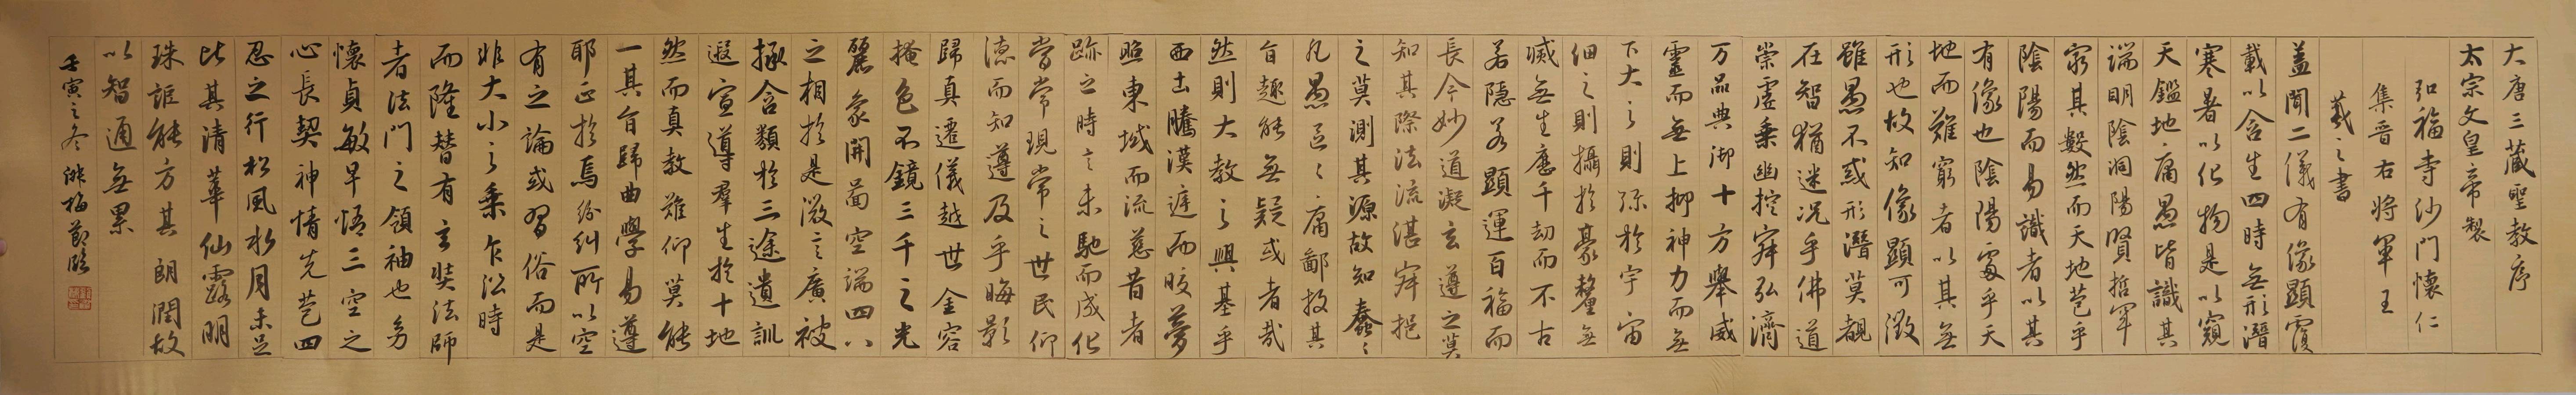 大唐三藏聖教序
太宗文皇帝製
弘福寺沙門懷仁
集晉右將軍王
羲之書
蓋聞二儀有像顯覆
載以含生四時無形潛
寒暑以化物是以窺
天鑑地庸愚皆識其
端明陰洞陽賢哲罕
窮其數然而天地苞乎
陰陽而易識者以其
有像也陰陽處乎天
地而難窮者以其無
形也故知像顯可徵
雖愚不惑形潛莫覩
在智猶迷況乎佛道
崇虛乘幽控寂弘濟
万品典御十方舉威
靈而無上抑神力而無
下大之則彌於宇宙
細之則攝於豪釐無
滅無生歷千劫而不古
若隱若顯運百福而
長今妙道凝玄遵之莫
知其際法流湛寂挹
之莫測其源故知蠢〻
凡愚區〻庸鄙投其
旨趣能無疑或者哉
然則大教之興基乎
西土騰漢庭而皎夢
照東域而流慈昔者
跡之時言未馳而成化
當常現常之世民仰
德而知遵及乎晦影
歸真遷儀越世金容
掩色不鏡三千之光
麗象開圖空端四八
之相於是微言廣被
拯含類於三途遺訓
遐宣導羣生於十地
然而真教難仰莫能
一其旨歸曲學易遵
耶正於焉紛糾所以空
有之論或習俗而是
非大小之乘乍沿時
而隆替有玄奘法師
者法門之領袖也幼
懷貞敏早悟三空之
心長契神情先苞四
忍之行松風水月未足
比其清華仙露明
珠詎能方其朗潤故
以智通無累
壬寅之冬 梅節臨